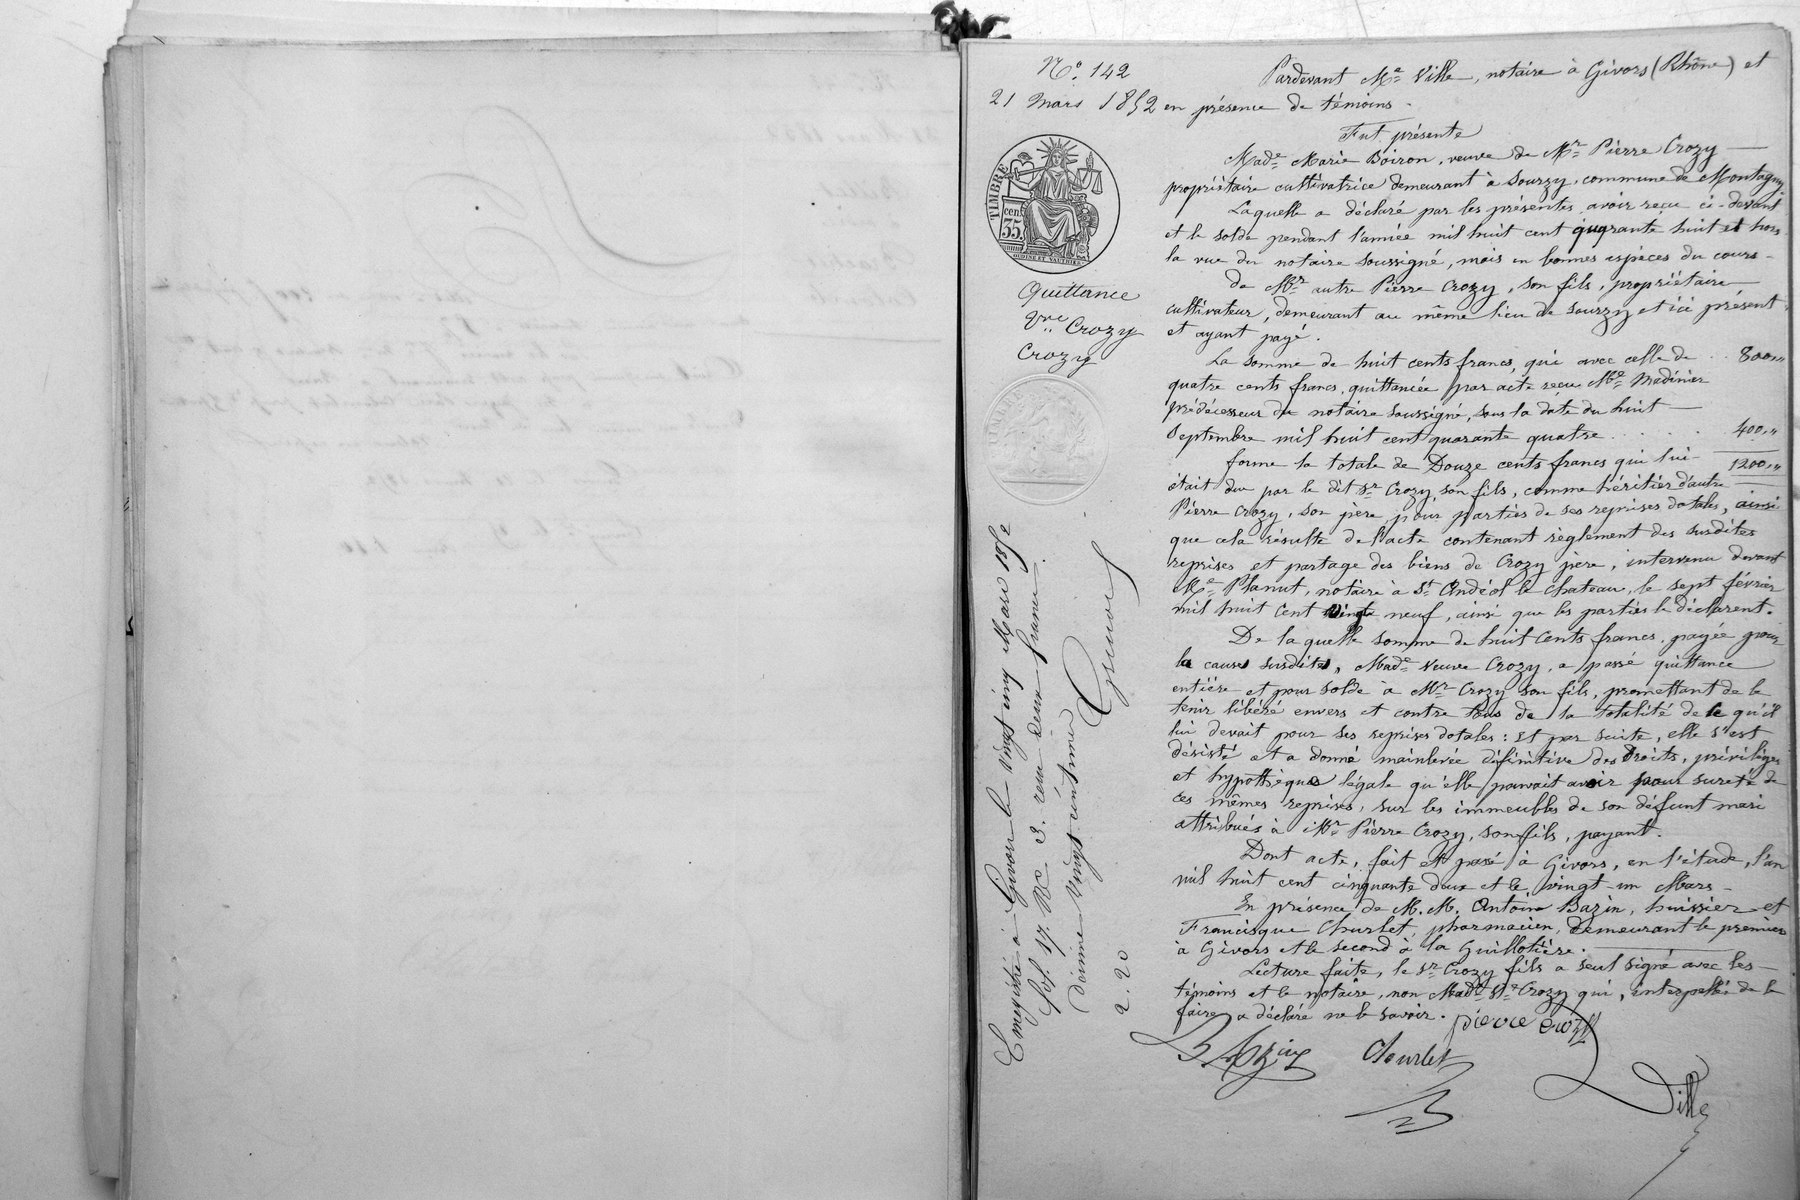 N° 142
21 mars 1852
TIMBRE
cent
35
OUDINÉ ET VAUTHIER
Quittance
Vve Crozy
Crozy
Pardevant Me Ville, notaire à Givors (Rhône) et
en présence de témoins.
Fut présente
Made Marie Boiron, veuve de Mr Pierre Crozy
propriétaire cultivatrice demeurant à Sourzy, commune de Montagny.
Laquelle a déclaré par les présentes avoir reçu ci-devant
et le solde pendant l'année mil huit cent quarante huit et hors
la vue du notaire soussigné, mais en bonnes espèces du cours
de Mr autre Pierre Crozy, son fils, propriétaire
cultivateur, demeurant au même lieu de Sourzy et ici présent,
et ayant payé.
La somme de huit cents francs, qui avec celle de .. 800,,
quatre cents francs, quittancée par acte reçu Me Madinier
prédécesseur du notaire soussigné, sous la date du huit
Septembre mil huit cent quarante quatre ..... 400,,
forme la totale de Douze cents francs qui lui 1200,,
était du par le dit Sr Crozy, son fils, comme héritier d'autre
Pierre Crozy, son père, pour parties de ses reprises dotales, ainsi
que cela résulte de l'acte contenant règlement des susdites
reprises et partage des biens de Crozy père, intervenu devant
Me Planut, notaire à St Andéol le Chateau, le sept février
mil huit cent vingt neuf, ainsi que les parties le déclarent.
De laquelle somme de huit cents francs, payée pour
la cause susdite, Made Veuve Crozy, a passé quittance
entière et pour solde à Mr Crozy son fils, promettant de le
tenir libéré envers et contre tous de la totalité de ce qu'il
lui devait pour ses reprises dotales : Et par suite, elle s'est
désisté et a donné mainlevée définitive des Droits, priviléges
et hypothèque légale qu'elle pouvait avoir pour sureté de
ces mêmes reprises, sur les immeubles de son défunt mari
attribués à Mr Pierre Crozy, son fils, payant.
Dont acte, fait et passé à Givors, en l'étude, l'an
mil huit cent cinquante deux et le vingt-un Mars
En présence de M.M. Antoine Bazin, huissier et
Francisque Churlet, pharmacien, demeurant le premier
à Givors et le second à la Guillotière.
Lecture faite, le Sr Crozy fils a seul signé avec les
témoins et le notaire, non Made Ve Crozy qui, interpellée de le
faire a déclaré ne le savoir.
pierre crozy
Bazin Churlet
Ville
Enregistré à Givors le vingt cinq Mars 1852
fol. 17. Rc 3. reçu deux francs
décime vingt centimes
2.20